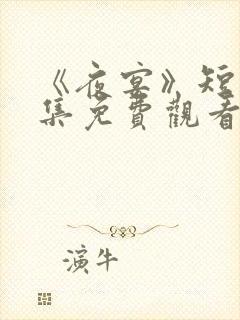 《夜宴》短
集免費觀看
演牛